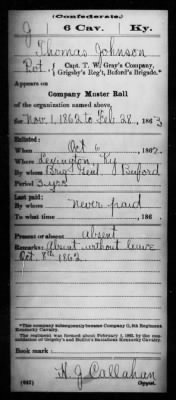 (Confederate.)
J 6 Cav. Ky.
Thomas Johnson
Pvt. Capt. T. W. Gray's Company,
Grigsby's Reg't, Buford's Brigade.*
Appears on
Company Muster Roll
of the organization named above,
for Nov. 1, 1862 to Feb. 28, 1863
Enlisted:
When Oct 6, 1862.
Where Lexington, Ky
By whom Brig. Genl Buford
Period 3 yrs
Last paid:
By whom never paid
To what time 186 .
Present or absent absent
Remarks: Absent without leave
Oct. 8th 1862
*This company subsequently became Company G, 6th Regiment
Kentucky Cavalry.
The regiment was formed about February 1, 1863, by the con-
solidation of Grigsby's and
Battalions Kentucky Cavalry.
Book mark:
(642) H. J. Callahan
Copyist.